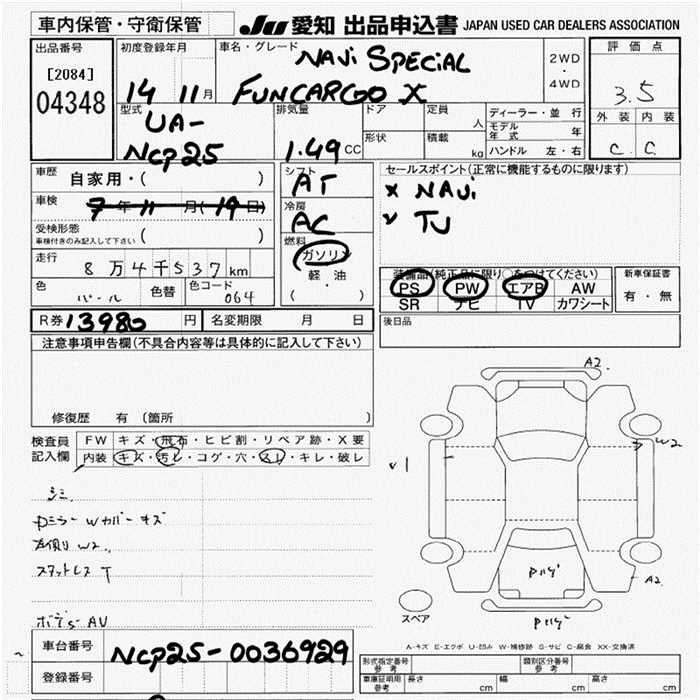 車内保管・守衛保管
JU 愛知 出品申込書 JAPAN USED CAR DEALERS ASSOCIATION
出品番号
[2084]
04348
初度登録年月
14 11月
車名・グレード
NAVi SPECIAL
FUNCARGO X
2WD
・
4WD
評価点
3.5
外装 内装
C C
型式
UA-
NCP25
排気量
1.49 CC
ドア
定員
人
形状
積載
kg
ディーラー・並行
モデル年式 年
ハンドル 左・右
車歴
自家用・( )
車検
7年11月(19日)
受検形態
車検付きのみ記入して下さい ( )
走行
8万4千537km
色
パール
色替
色コード
064
シフト
AT
冷房
AC
燃料
ガソリン
軽・油
( ・ )
セールスポイント(正常に機能するものに限ります)
× NAVi
TV
装備品(純正品に限り○をつけてください)
PS PW エアB AW
SR ナビ TV カワシート
新車保証書
有・無
後日品
R券 13980 円
名変期限 月 日
注意事項申告欄(不具合内容等は具体的に記入して下さい)
修復歴 有 (箇所
検査員
記入欄
FW キズ・飛石・ヒビ割・リペア跡・X要
内装 キズ・汚レ・コゲ・穴・スレ・キレ・破レ
シミ
Pミラー Wカバー キズ
左側り W2
スタットレス T
AU
A2
W2
1
A2
スペア
A-キズ E-エクボ U-凹み W-補修跡 S-サビ C-腐食 XX-交換済
車台番号
NCP25-0036929
登録番号
形式指定番号
参考
類別区分番号
参考
車庫証明用
参考
長さ cm 幅 cm 高さ cm